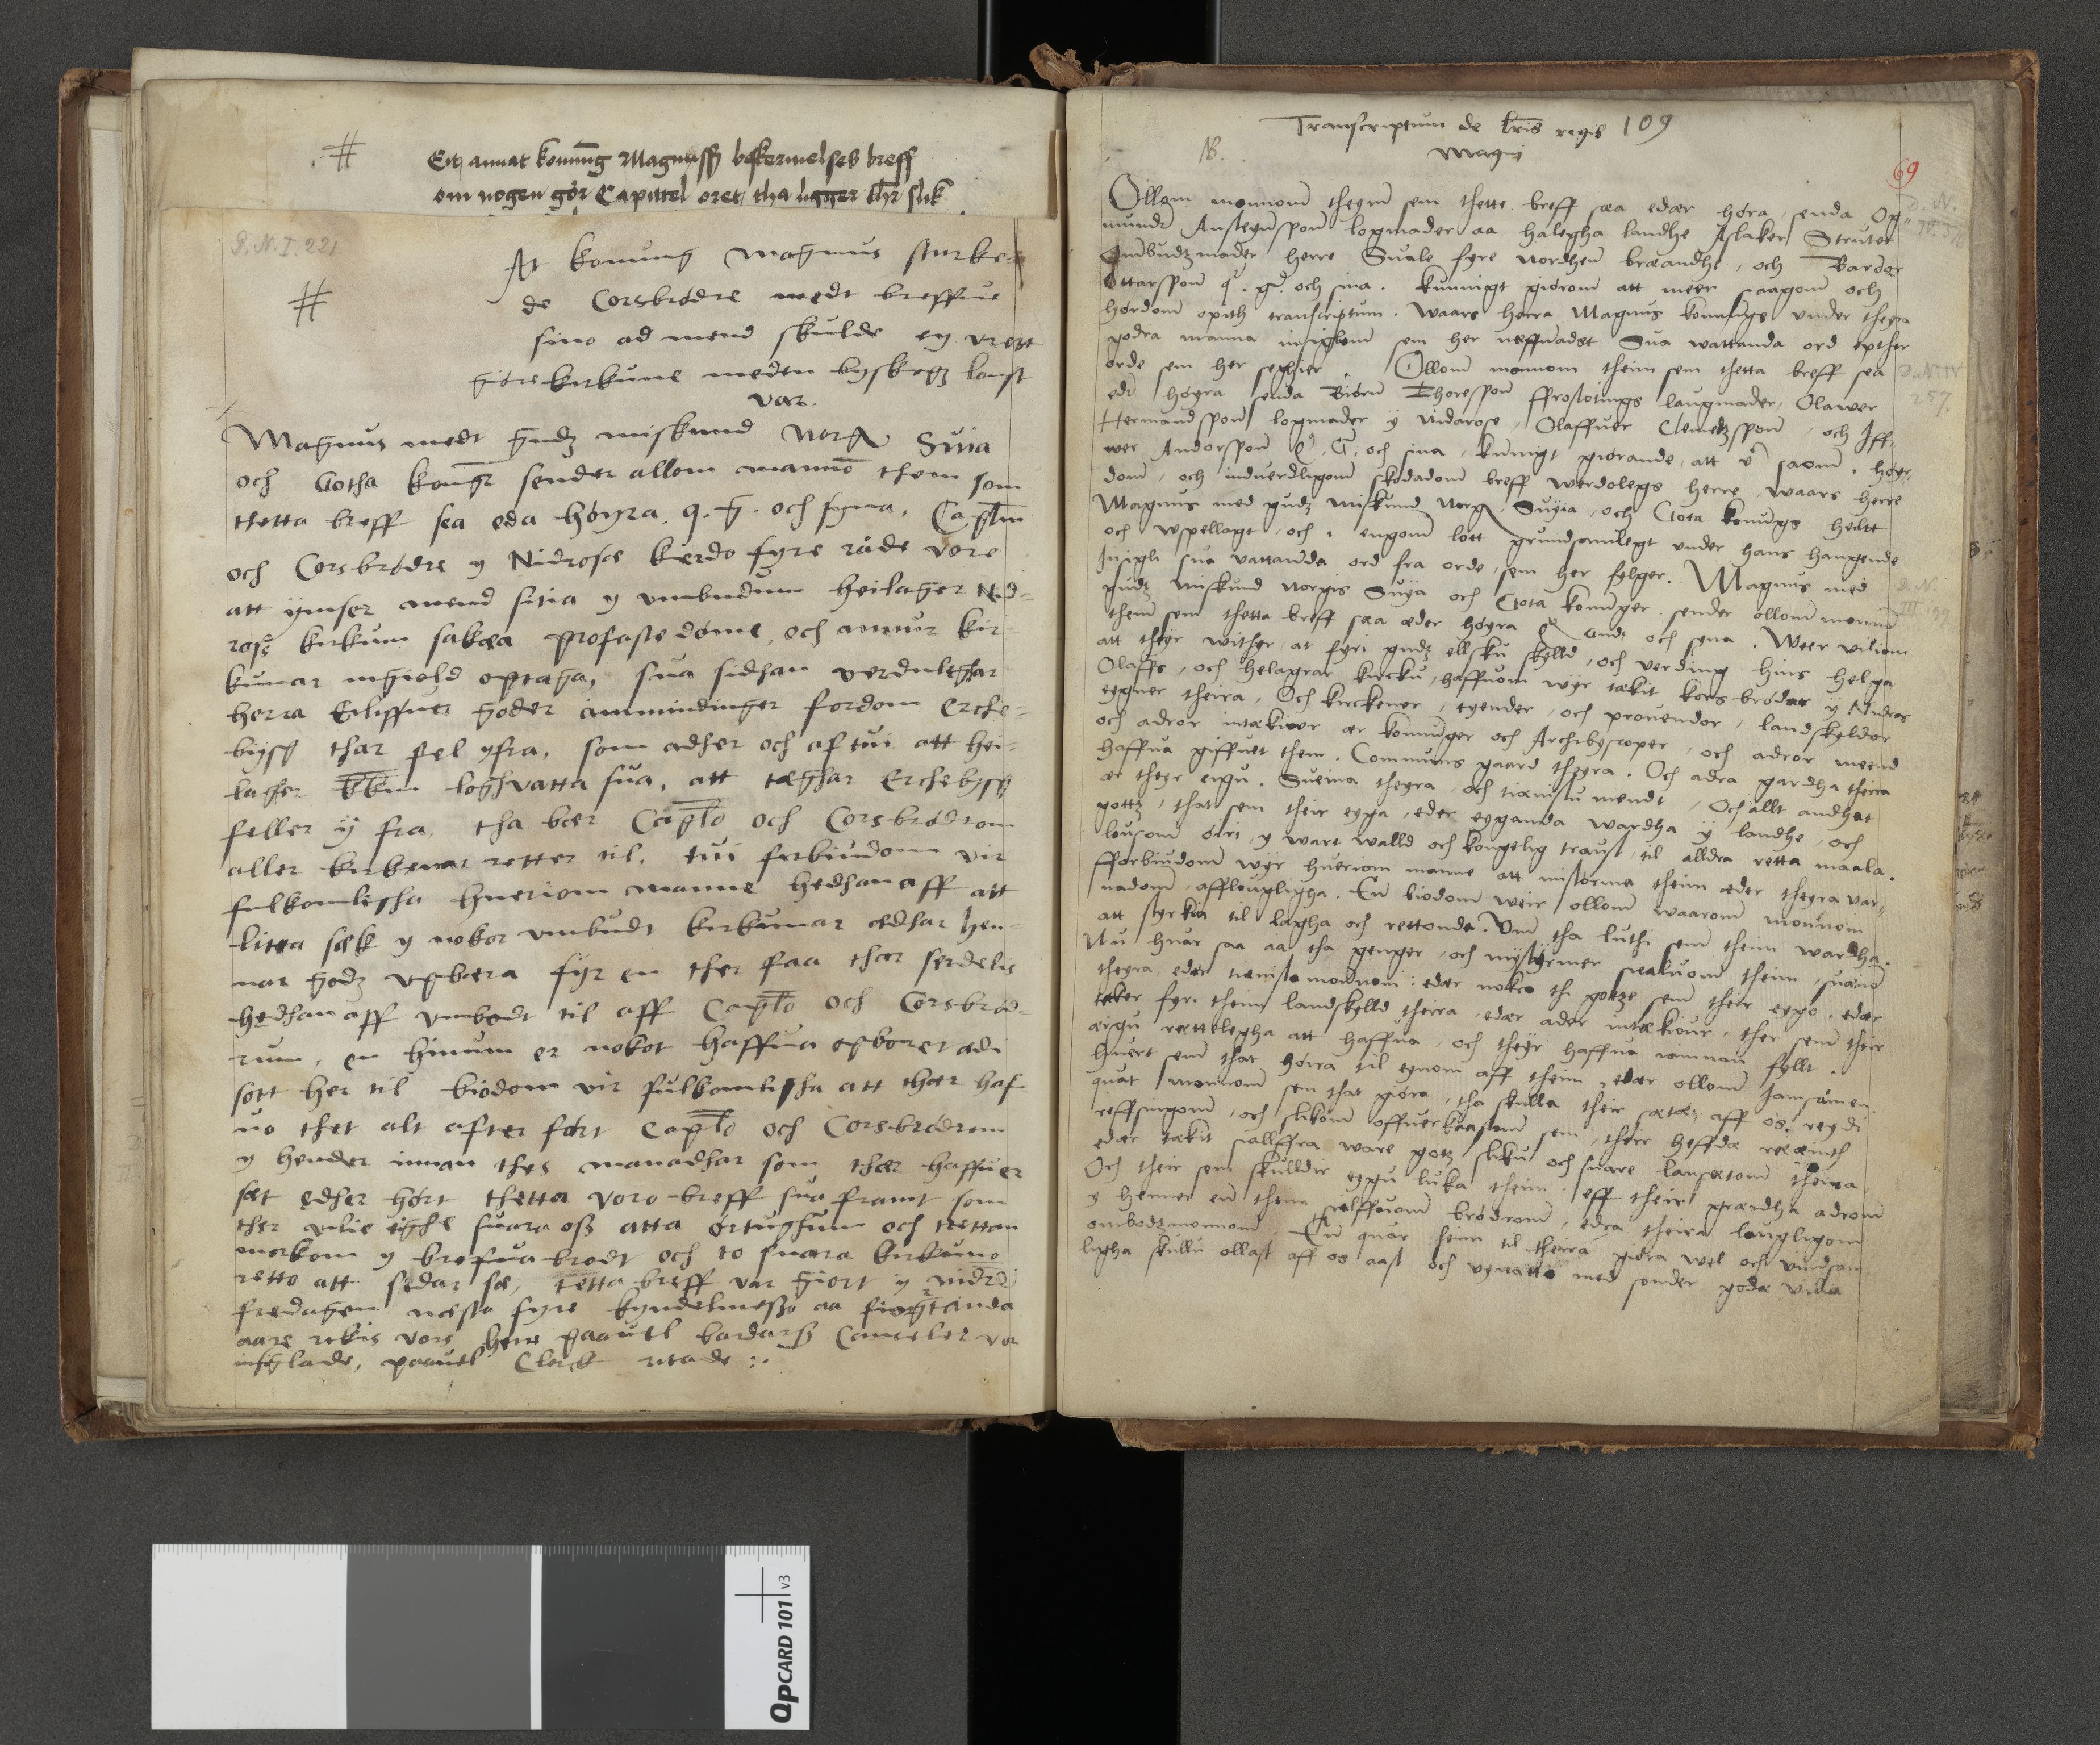 #
Eit annat konung Magnussz beskermelses breff
om nogen gør Capittel oret, tha ligger thr slik
D.N.I. 221
#
At konung Magnus sturke-
de Corsbrødre medt breffue
sino ad mend skulde ey vrett
giøre kirkune meden byskopz laust
var.
Magnus medt gudz miskund Norg Suia
och Gotha kongr sender allom mannom them som
thetta breff sea eda høyra q. g. och syna, Caplm
och Corsbrødre y Nidrose kerdo fyre råde vore
att ymser mend sitia y vmbudum heilager Nid-
ross kirkum sakæa profaste døme, och annur kir-
kunar ingiæld optaga, sua sidhan verduleghar
herra Eiliffuer goder aminninger fordom erche-
bysp thar fel yfra, som adher och aftui att hei-
lagher loghvatta sua, att tæghar Erchebysp
feller y fra, tha bær Caplo och Corsbrødrom
aller kirkenar retter til, tui forbiudom vir
fulkomlegha huariom manne hedhan aff att
litea sæk y nokor vmbudt kirkunnar ædhar hen-
nar godz vpbæra fyr en ther faa thær serdelis
hedhan aff vmbodt til aff Caplo och Corsbrød-
rum, en hinum er nokot haffua opboret ædi
sott her til biødom vir fulkomligha att thær haf-
uo thet alt after ført Caplo och Corsbrødrom
y hender innan thes manadhar som thær haffuer
sæt edher hørt thetta voro breff sua framt som
ther vilie eighe suara oss atta ørtughum och trettan
morkom y brefua brodt och to suara kirkunno
retto att sidar sæ, tetta breff var giort y nidrosi
fredagen næsta fyre kyndelmesso aa fiogrtanda
aare rikis vors herre paauel bardarss Canceler vor
insiglade, paauel Clerck ritade :.
Transcriptum de lris regis 109
Magni
NB.
69
Ollom monnom theym sem thette breff sæa edær høra, senda Og-
mundr Ansteynsson logmader aa halegha landhe Aslaker Struter
Ombudzmader herre Suale fyre nordhen brææandhe, och Bardær
Ottarsson q. g. och sina. kunnigt giørom att meer saagom och
hørdom opith transcriptum. waars herra Magnus konungs under theyra
godra manna insiglom sem her neffnadet Sua wattanda ord epther
orde sem her seghier. Ollom monnom theim sem thetta breff sea
edr høyra senda Biørn Thoresson ffrostotings laugmader, Olawer
Hermandsson logmader y nidarose, Olaffuer Clemetzson, och Iff-
wer Andorsson q. G. och sina, kunnigt giørande, att v saom, høyr-
dom, och induerdligom skodadom breff werdolegs herre, waars herre
Magnus med gudz miskund Norg, Suyia, och Gota konugs heiltt
och vspellagt, och i engom lótt grunsamlegt under hans hangende
Insigli sua vattanda ord fra orde, sem her fylger. Magnus med
gudz miskund norgis Suya och Gota konunger sender ollom monnom
them sem thetta breff sæa æder høyra q andz och syna. Weer viliom
att theyr wither, at fyri gudz ellsku skylld, och verding hins helga
Olaffs, och helagrar kircku, haffuom wyr tækit kors brødær y Nidros
eygner theira, Och kirckener, tyender, och prouendor, landskyldor
och adror intækiwr ær konunger och Archibyscoper, och adror meend
haffua giffuet them. Communs gaard theyra. Och adra gardha theira
ær theyr eigu. Sueina theyra, och tiænistu mendt, Och allt andhat
gottz, that sem their eyga, eder eyganda wardha y landhe, och
lousom óiri, y wart walld och kongelig traust, til alldra retta maala.
fforbiudom wyr hueriom manne att mistorma theim æder theyra var-
nadom afflougligha. En biodom weir ollom waarom monnom
att styrkia til lagha och rettonda. Um tha luthi sem them wardha.
Nu huar saa aa tha genger, och mystyrmer sealuom theim, suæinom
theyra, edær tiænista monnom: edær nokro th gottze sem their eygo, edær
teker fyr. theim landskylld theira, edær ader intækiour, ther sem theyr
æigu rættelegha att haffua, och theyr haffua
huert sem that høira til eynom aff theim, edær ollom Iamsåmen.
quat monnom sem that giøra, tha skulla their sætæ aff os. reydi
reffsingom, och slikom offuerkaastom sem, their heffdæ
edær tækit siallffra ware gotz sliku och suare lansætom theira
Och their sem skulldir eygu luka theim: eff their grændha adrom
y henner en them siælffuom brødrom, edra theira lougligom
ombodzmonnom. En quar heim til theira giøra wel och vindsam-
ligha skullu ollast aff os aast och vynatto med sonder goda vilia